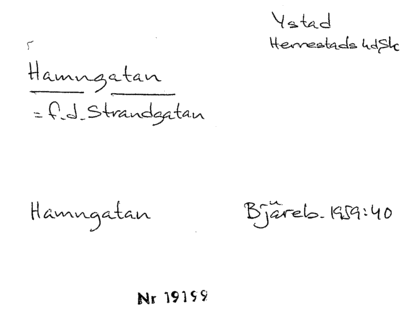 Ystad
Herrestads hd Sk
Hamngatan
= f.d. Strandgatan
Hamngatan Bjäreb. 1959:40
Nr 19199